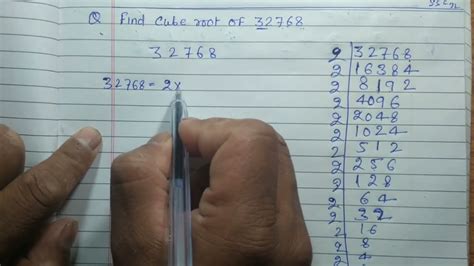 Q Find Cube root of 32768
32768
32768 = 2x
2 | 32768
2 | 16384
2 | 8192
2 | 4096
2 | 2048
2 | 1024
2 | 512
2 | 256
2 | 128
2 | 64
2 | 32
2 | 16
2 | 8
2 | 4